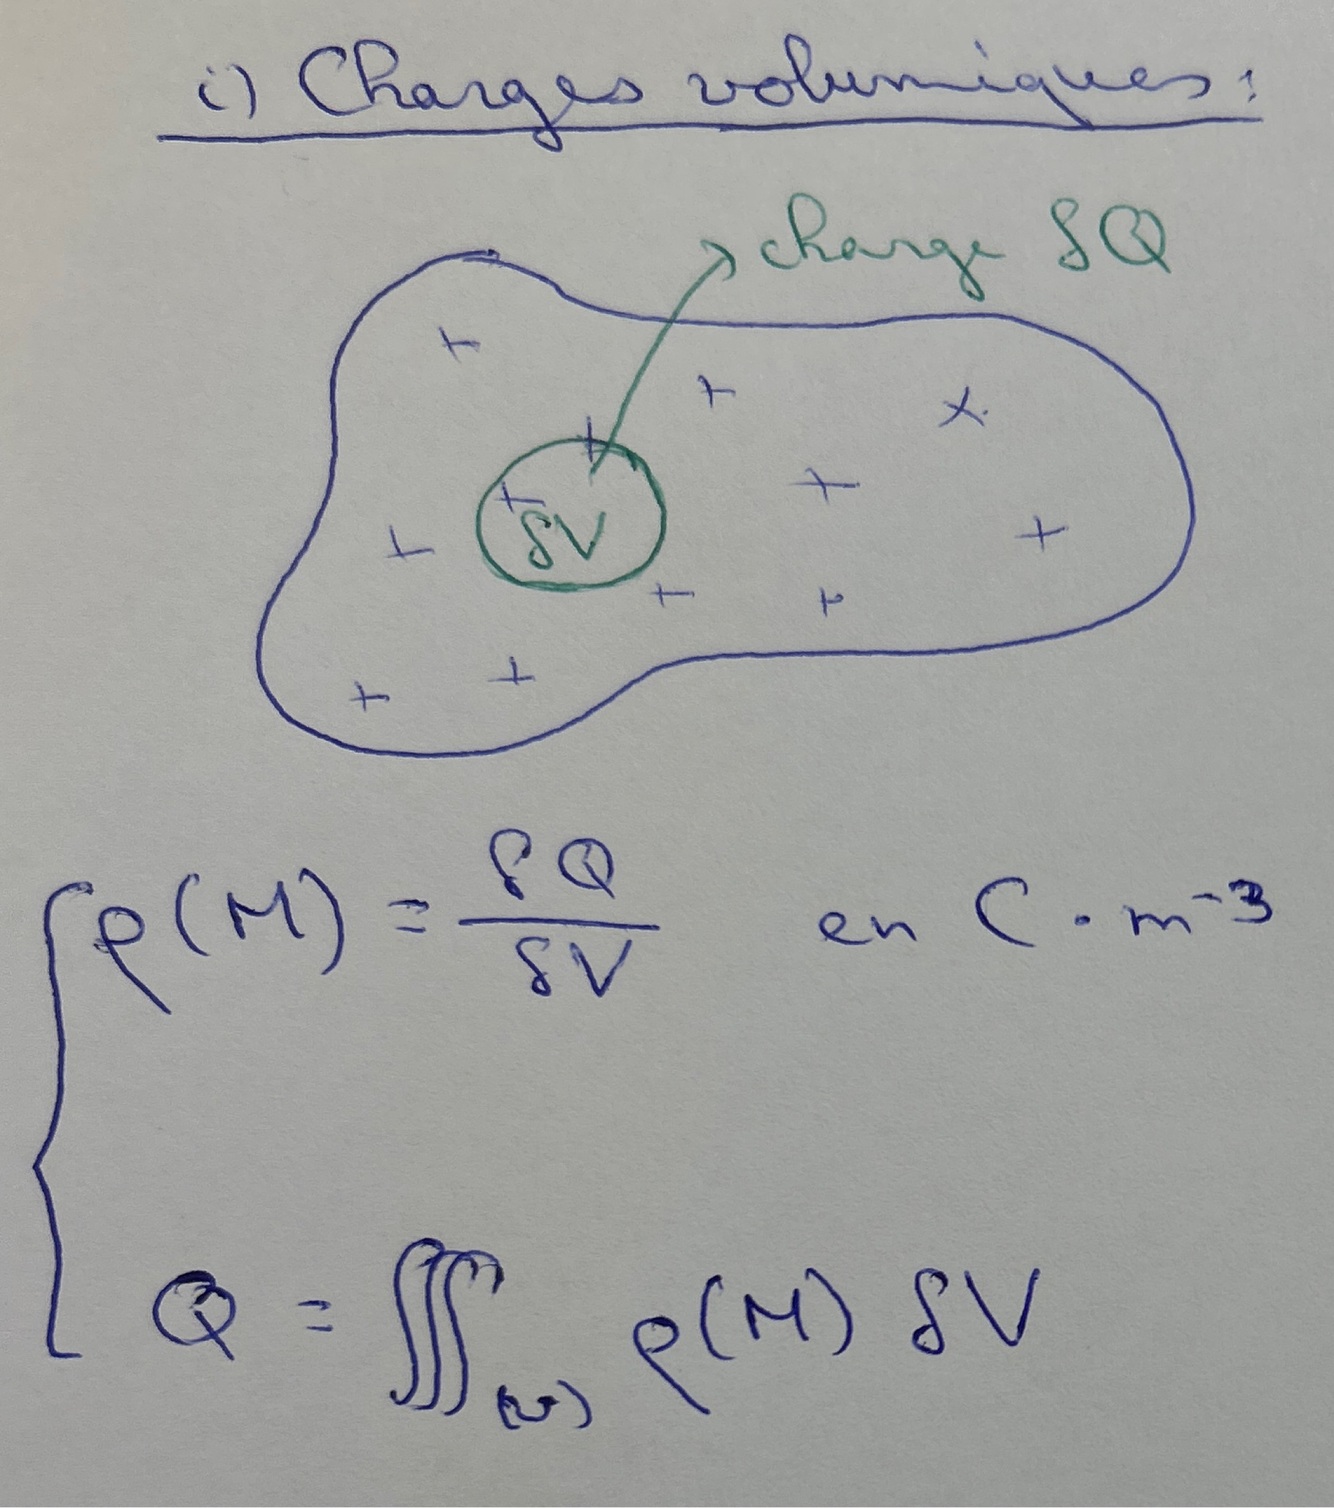 i) Charges volumiques :
charge δQ
+ + + + + + + + + + + +
δV
ρ(M) = δQ/δV en C.m⁻³
Q = ∭(v) ρ(M) δV